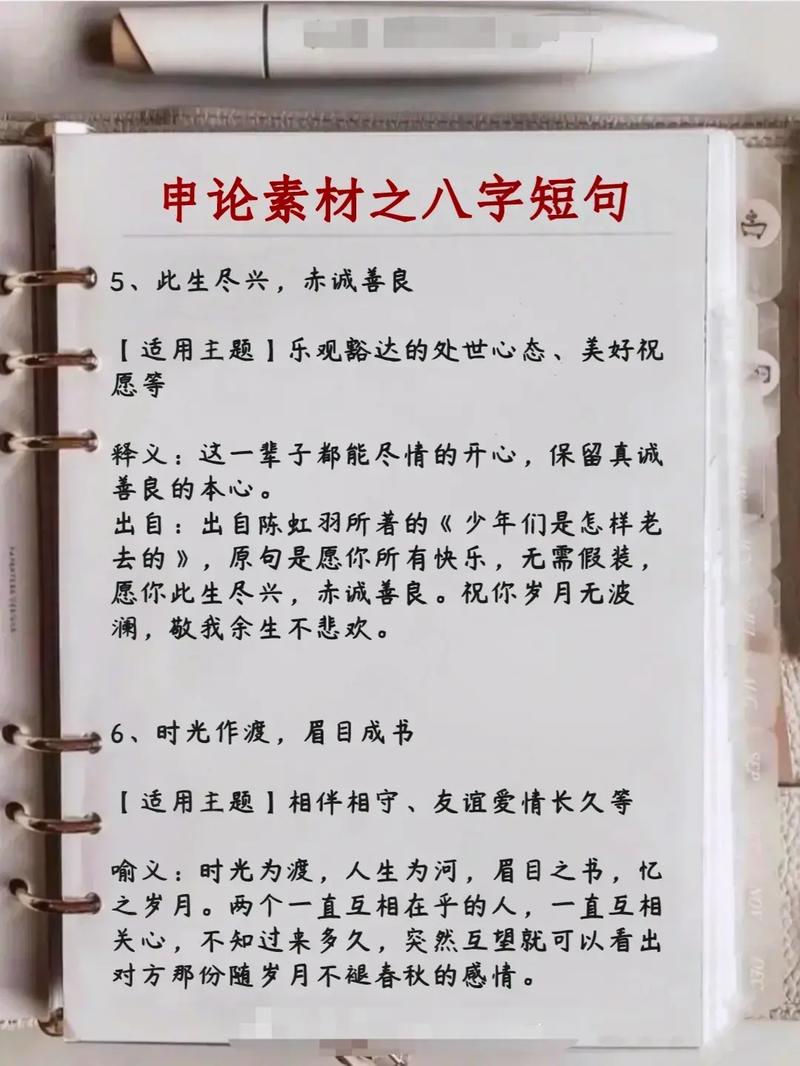 申论素材之八字短句
5、此生尽兴，赤诚善良
【适用主题】乐观豁达的处世心态、美好祝
愿等
释义：这一辈子都能尽情的开心，保留真诚
善良的本心。
出自：出自陈虹羽所著的《少年们是怎样老
去的》，原句是愿你所有快乐，无需假装，
愿你此生尽兴，赤诚善良。祝你岁月无波
澜，敬我余生不悲欢。
6、时光作渡，眉目成书
【适用主题】相伴相守、友谊爱情长久等
喻义：时光为渡，人生为河，眉目之书，忆
之岁月。两个一直互相在乎的人，一直互相
关心，不知过来多久，突然互望就可以看出
对方那份随岁月不褪春秋的感情。
SEP
NOV
DEC